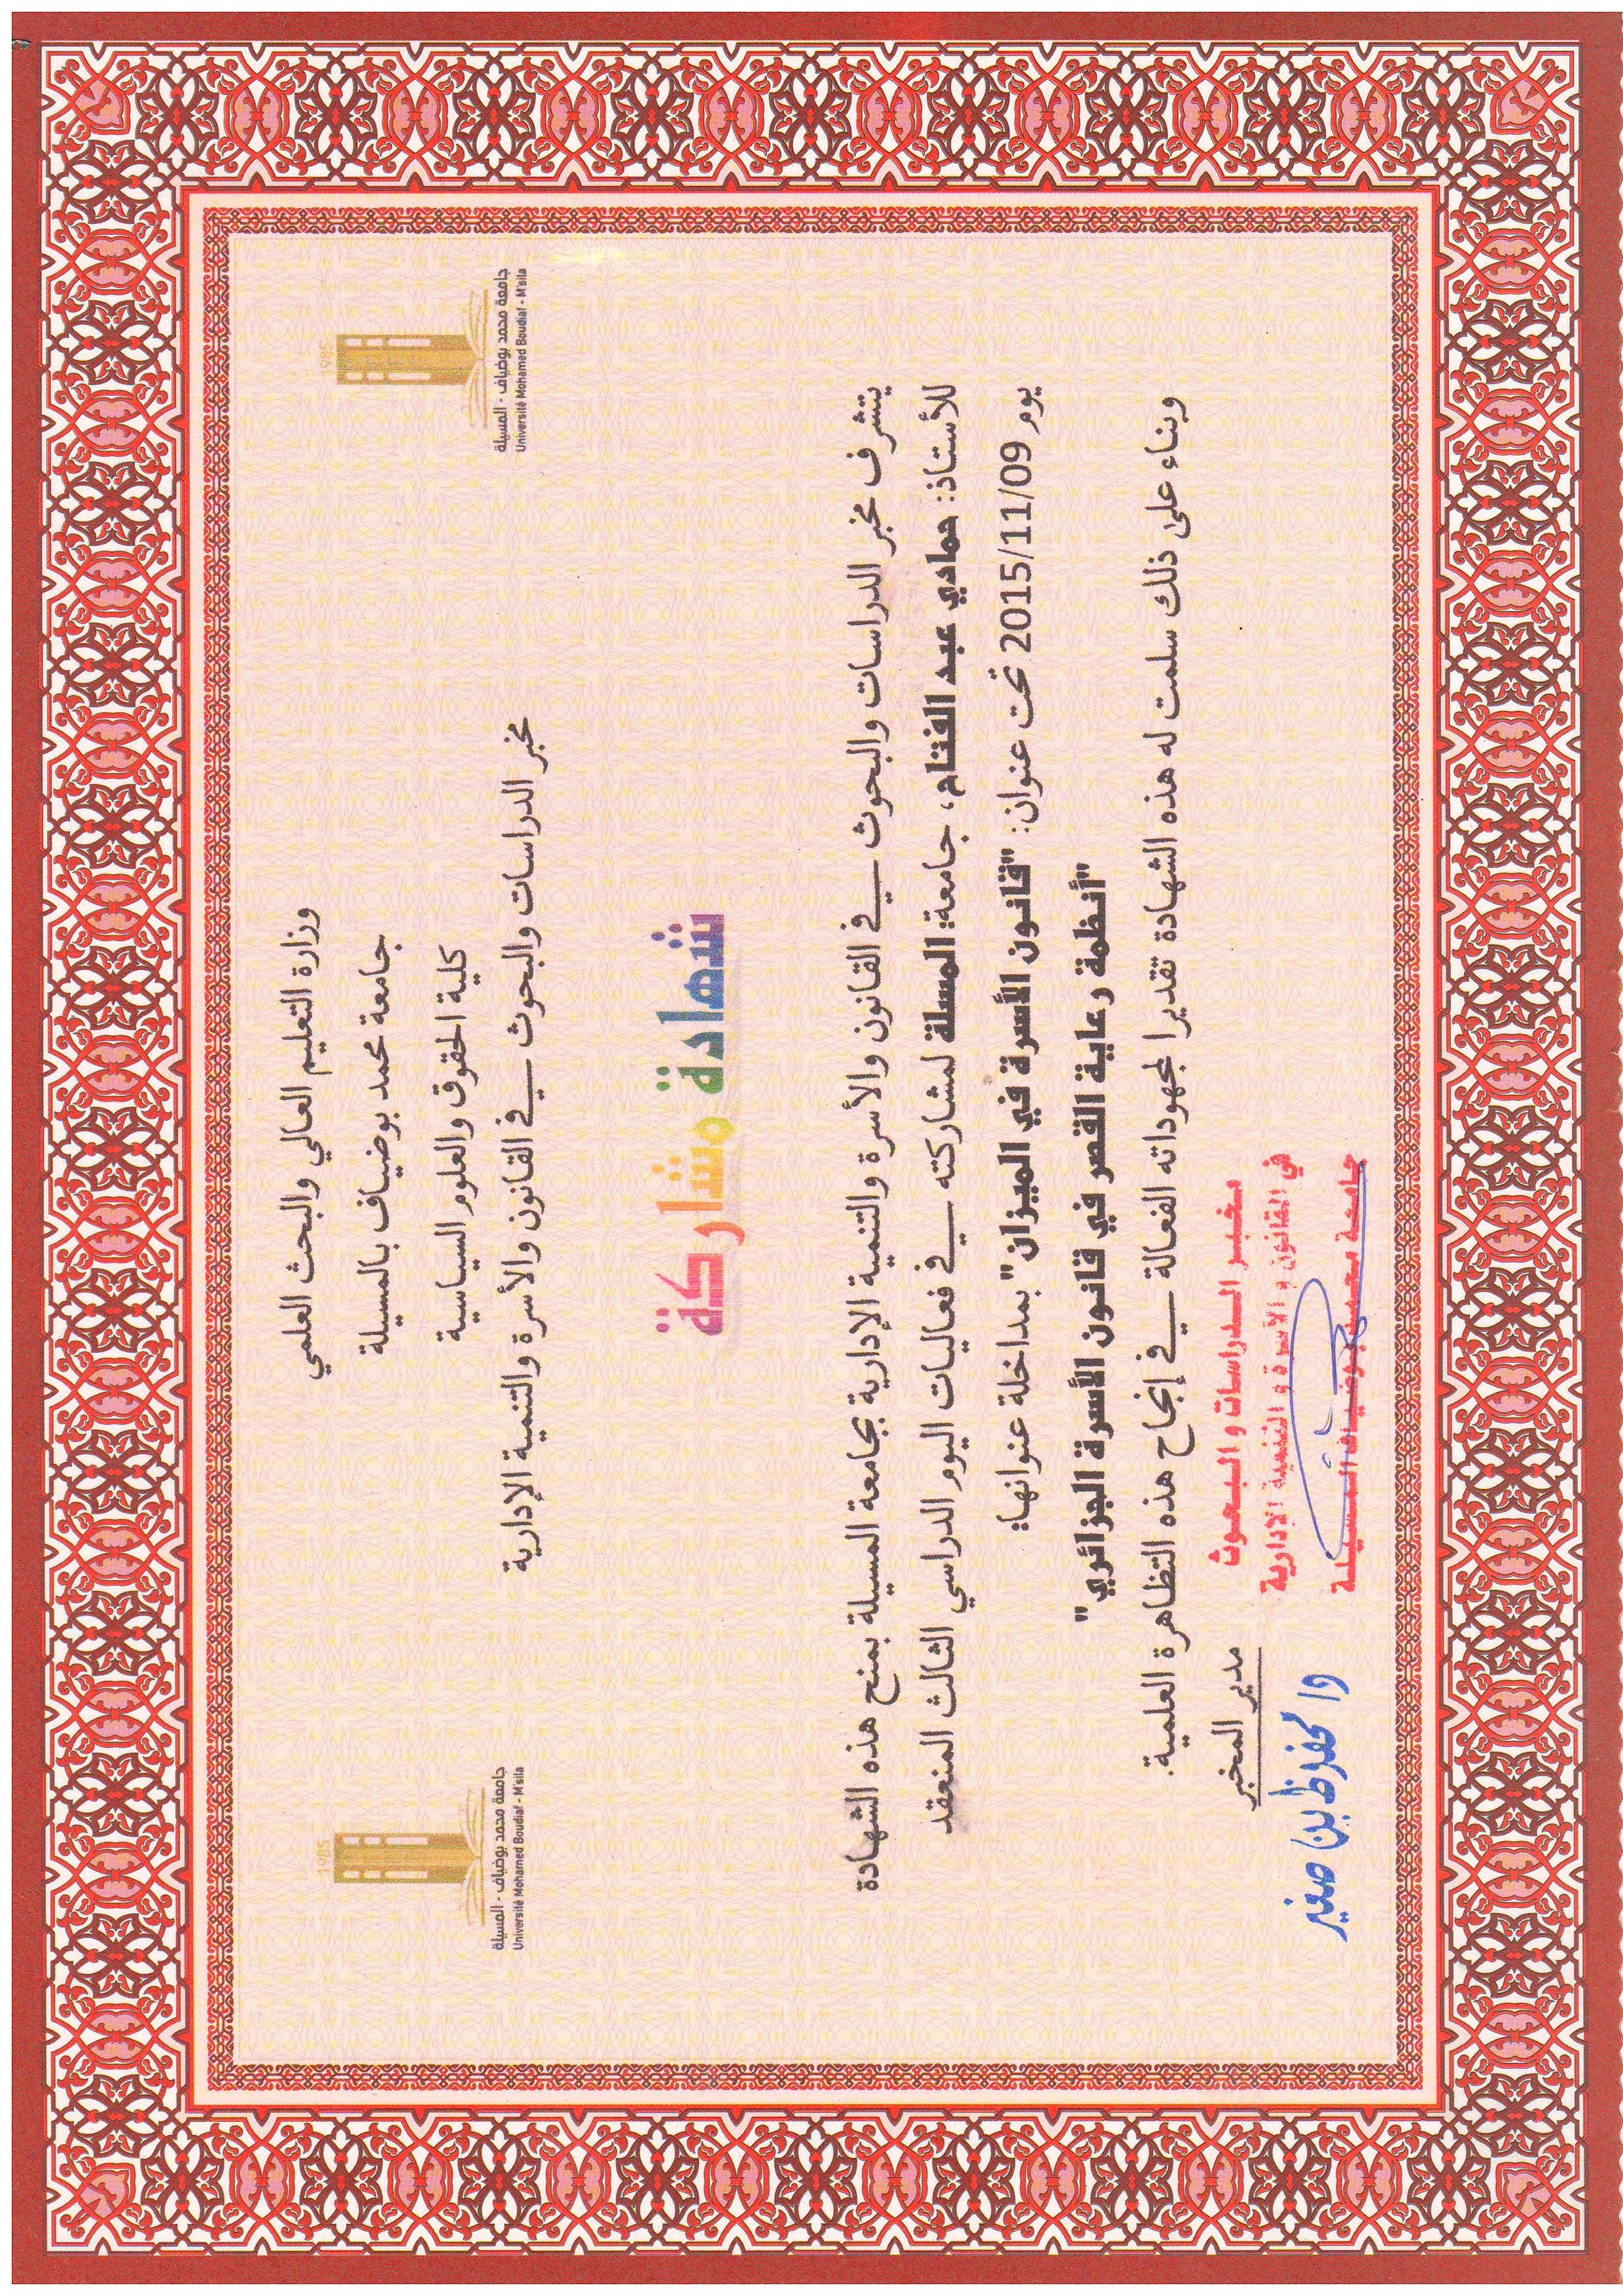 وزارة التعليم العالي والبحث العلمي
جامعة محمد بوضياف بالمسيلة
كلية الحقوق والعلوم السياسية
مخبر الدراسات والبحوث في القانون والأسرة والتنمية الإدارية
1985
جامعة محمد بوضياف - المسيلة
Université Mohamed Boudiaf - M'sila
1985
جامعة محمد بوضياف - المسيلة
Université Mohamed Boudiaf - M'sila
شهادة مشاركة
يتشرف مخبر الدراسات والبحوث في القانون والأسرة والتنمية الإدارية بجامعة المسيلة بمنح هذه الشهادة
للأستاذ: حمادي عبد الفتاح، جامعة: المسلة لمشاركته في فعاليات اليوم الدراسي الثالث المنعقد
يوم 2015/11/09 تحت عنوان: "قانون الأسرة في الميزان" بمداخلة عنوانها:
"أنظمة رعاية القصر في قانون الأسرة الجزائري"
وبناء على ذلك سلمت له هذه الشهادة تقديرا لمجهوداته الفعالة في إنجاح هذه التظاهرة العلمية.
مدير المخبر
مخبر الدراسات والبحوث
في القانون والأسرة والتنمية الإدارية
جامعة محمد بوضياف المسيلة
بن صغير